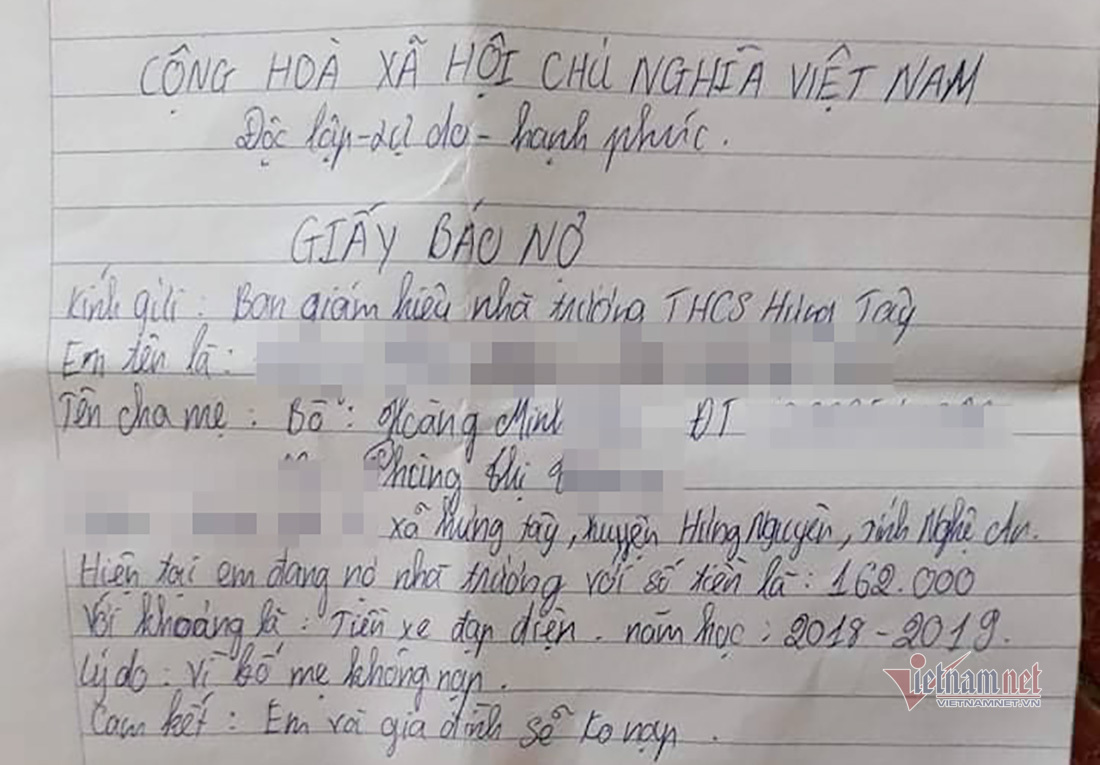 CỘNG HOÀ XÃ HỘI CHỦ NGHĨA VIỆT NAM
Độc lập - tự do - hạnh phúc.
GIẤY BÁO NỢ
Kính gửi : Ban giám hiệu nhà trường THCS Hưng Tây
Em tên là :
Tên cha mẹ : Bố : Hoàng Minh ĐT
Phùng thị
xã hưng tây, huyện Hưng Nguyên, tỉnh Nghệ An.
Hiện tại em đang nợ nhà trường với số tiền là : 162.000
Với khoảng là : Tiền xe đạp điện . năm học : 2018 - 2019.
Lý do : Vì bố mẹ không nạp.
Cam kết : Em và gia đình sẽ ko nạp.
Vietnamnet
VIETNAMNET.VN